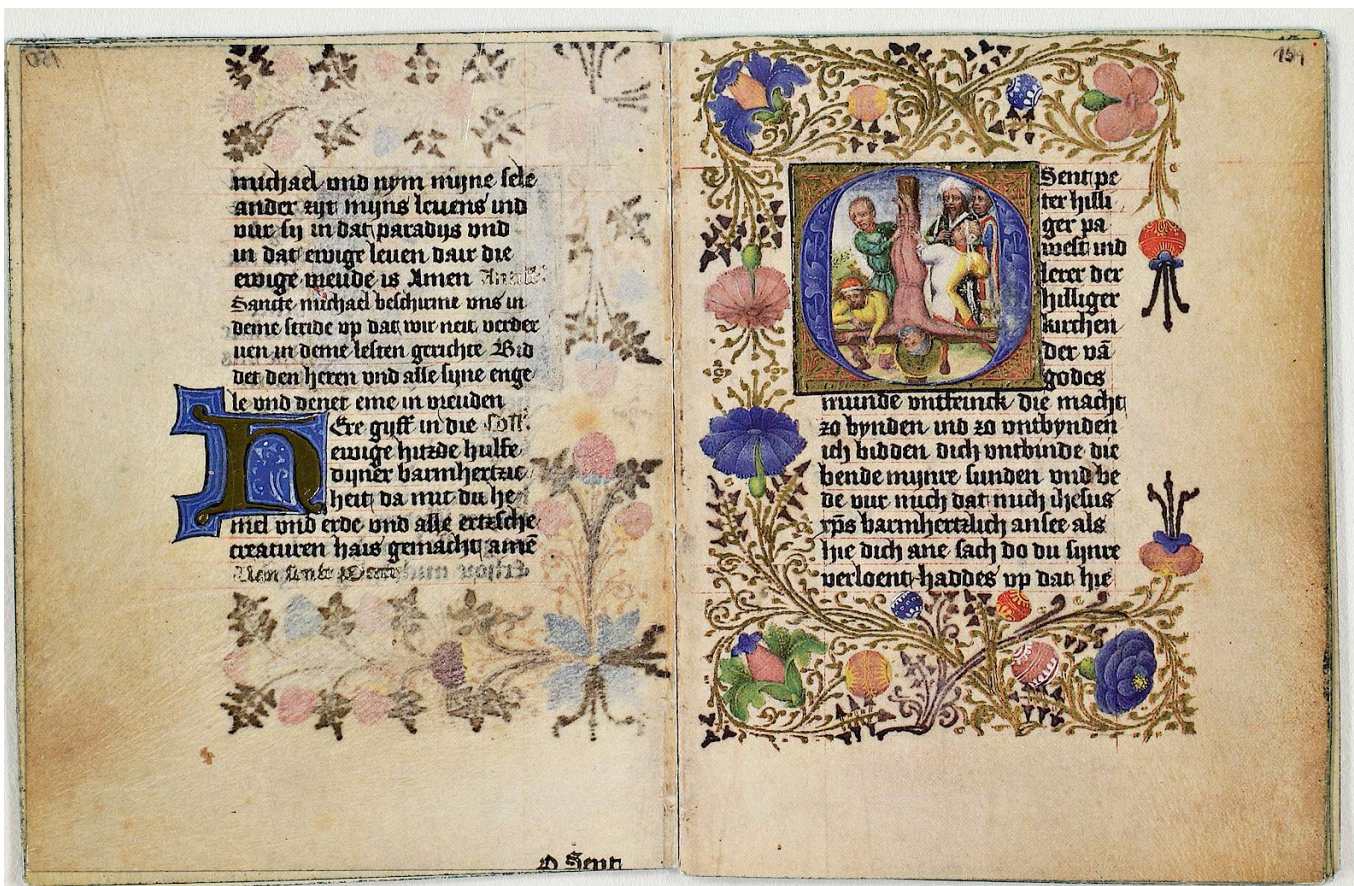 michael vnd nym mijne sele
ander zijt mijns leuens ind
vur sij in dat paradijs vnd
in dat ewige leuen dair die
ewige vreude is Amen
Sancte michael beschirme vns in
deme stride vp dat wir neit verder
uen in deme lesten gerichte Bid
det den heren vnd alle sijne enge
le vnd denet eme in vreuden
Here gyff in die
ewige hitzde hulfe
dijner barmhertzic
heit da mit du he
mel vnd erde vnd alle ertzsche
creaturen hais gemacht amē
O Sent
151
O Sent pe
ter hilli
ger pa
west ind
lerer der
hilliger
kirchen
der vā
godes
munde vntfeinck die macht
zo bynden ind zo vntbynden
ich bidden dich vntbinde die
bende mijnre sunden vnd be
de vur mich dat mich ihesus
xp̄s barmhertzlich ansee als
hie dich ane sach do du sijnre
verloent haddes vp dat hie